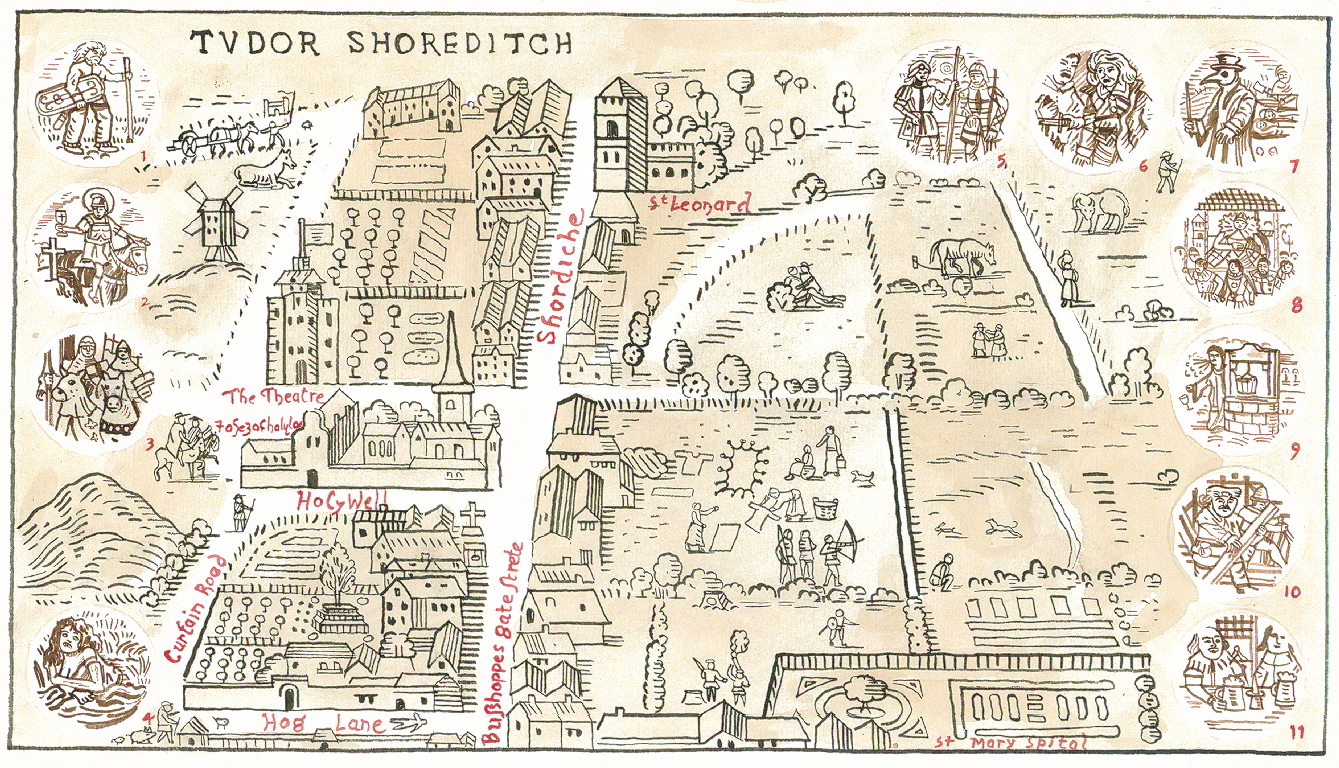 TVDOR SHOREDITCH
1
2
3
4
5
6
7
8
9
10
11
St Leonard
Shordiche
The Theatre
HoLyWell
Curtain Road
Busshoppes Gate Strete
Hog Lane
St Mary Spital